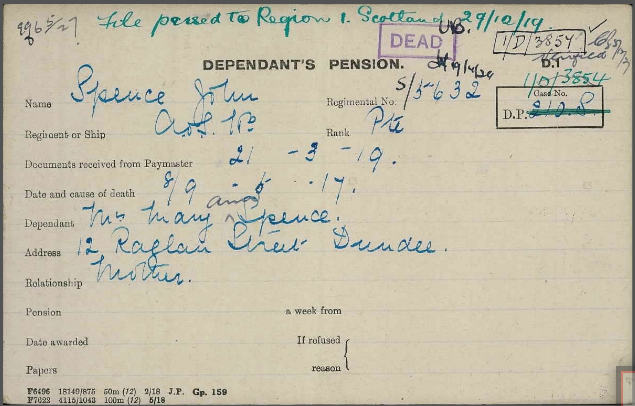 File passed to Region 1. Scotland 29/10/19.
DEAD
1/D/3854
Verified
DEPENDANT'S PENSION.
D.1
11/D/3854
Name Spence John
Regimental No. S/5632
Case No.
D.P.
Regiment or Ship
Rank Pte
Documents received from Paymaster 21 - 3 - 19.
Date and cause of death 8/9 .17.
Dependant Mrs Mary Ann Spence.
Address 12 Raglan Street Dundee.
Relationship Mother.
Pension a week from
Date awarded If refused
Papers reason
F6496 18149/875 50m (12) 2/18 J.P. Gp. 159
F7022 4115/1043 100m (12) 5/18